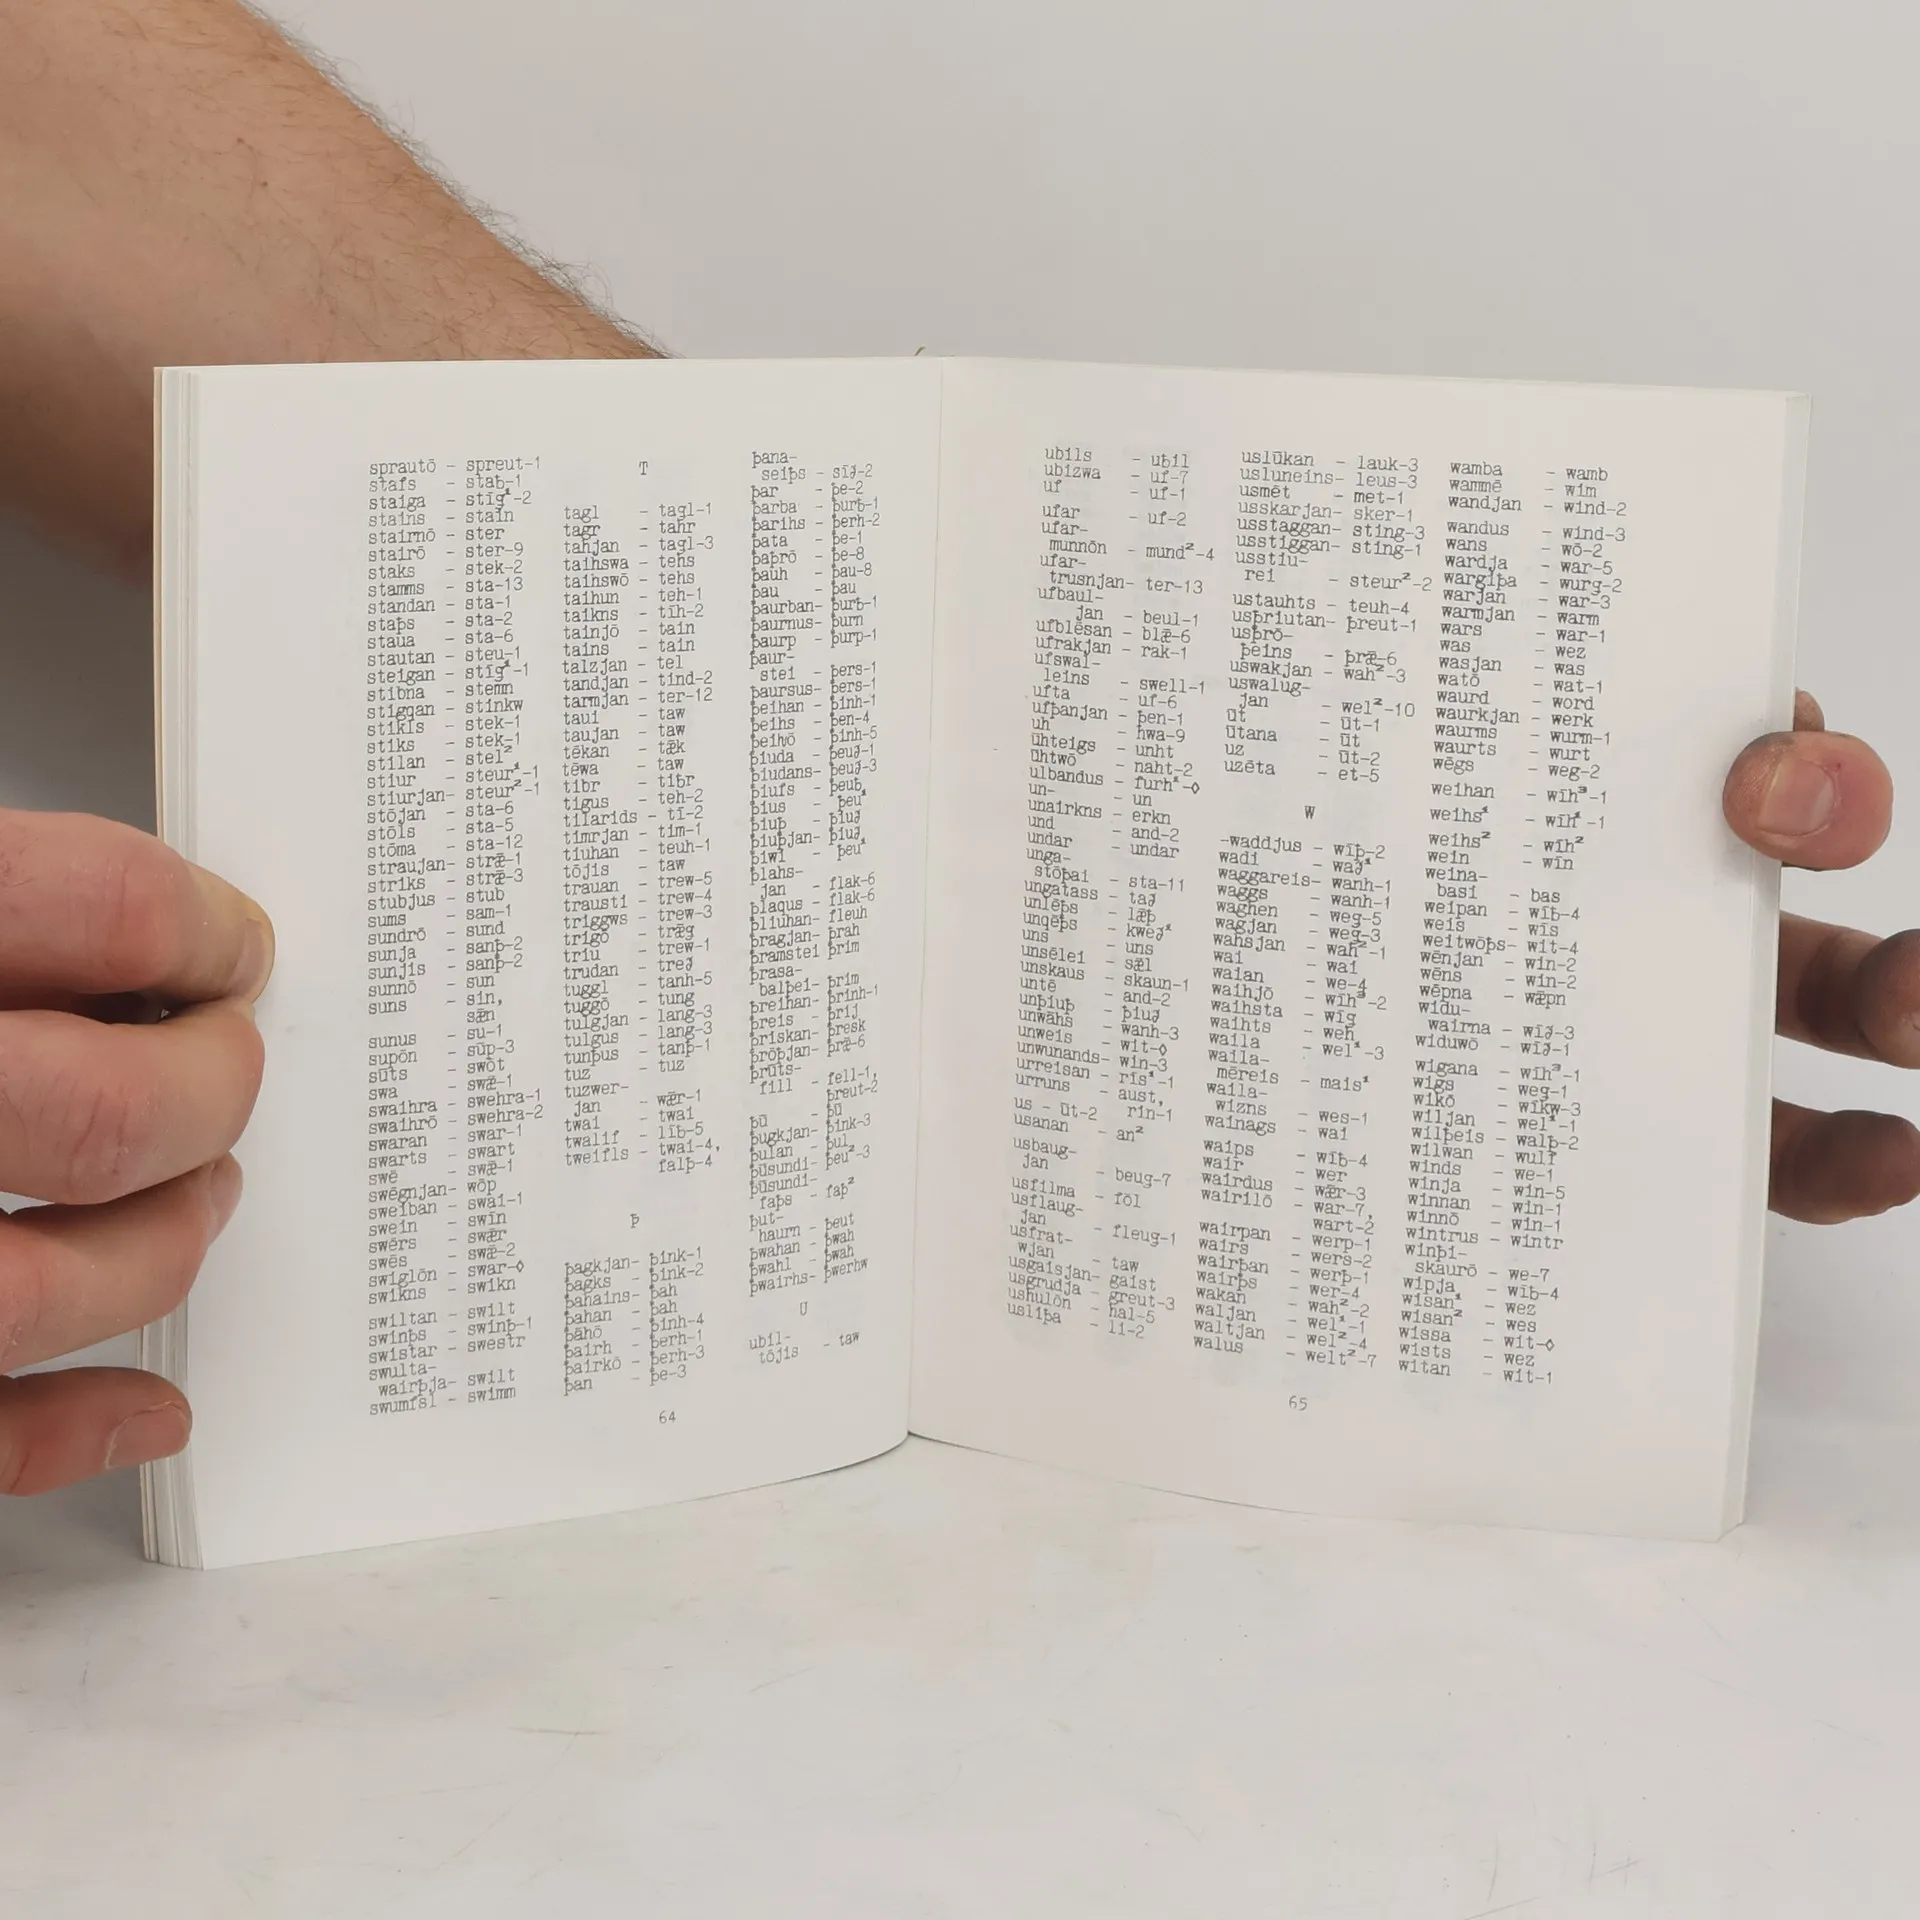 sprautō - spreut-1
stafs - staƀ-1
staiga - stīg¹-2
stains - stain
stairnō - ster
stairō - ster-9
staks - stek-2
stamms - sta-13
standan - sta-1
staþs - sta-2
staua - sta-6
stautan - steu-1
steigan - stīg¹-1
stibna - stemn
stigqan - stinkw
stikls - stek-1
stiks - stek-1
stilan - stel²
stiur - steur¹-1
stiurjan- steur²-1
stōjan - sta-6
stōls - sta-5
stōma - sta-12
straujan- strǣ-1
striks - strǣ-3
stubjus - stub
sums - sam-1
sundrō - sund
sunja - sanþ-2
sunjis - sanþ-2
sunnō - sun
suns - sin,
sǣn
sunus - su-1
supōn - sūp-3
sūts - swōt
swa - swǣ-1
swaihra - swehra-1
swaihrō - swehra-2
swaran - swar-1
swarts - swart
swē - swǣ-1
swēgnjan- wōp
sweiban - swai-1
swein - swīn
swērs - swǣr
swēs - swǣ-2
swiglōn - swar-◊
swikns - swikn
swiltan - swilt
swinþs - swinþ-1
swistar - swestr
swulta-
wairþja- swilt
swumfsl - swimm
T
tagl - tagl-1
tagr - tahr
tahjan - tagl-3
taihswa - tehs
taihswō - tehs
taihun - teh-1
taikns - tīh-2
tainjō - tain
tains - tain
talzjan - tel
tandjan - tind-2
tarmjan - ter-12
taui - taw
taujan - taw
tēkan - tǣk
tēwa - taw
tibr - tiƀr
tigus - teh-2
tilarids - tī-2
timrjan - tim-1
tiuhan - teuh-1
tōjis - taw
trauan - trew-5
trausti - trew-4
triggws - trew-3
trigō - trǣg
triu - trew-1
trudan - tređ
tuggl - tanh-5
tuggō - tung
tulgjan - lang-3
tulgus - lang-3
tunþus - tanþ-1
tuz - tuz
tuzwer-
jan - wǣr-1
twai - twai
twalif - līb-5
tweifls - twai-4,
falþ-4
Þ
þagkjan- þink-1
þagks - þink-2
þahains- þah
þahan - þah
þāhō - þinh-4
þairh - þerh-1
þairkō - þerh-3
þan - þe-3
þana-
seiþs - sīđ-2
þar - þe-2
þarba - þurƀ-1
þarihs - þerh-2
þata - þe-1
þaþrō - þe-8
þauh - þau-8
þau - þau
þaurban- þurƀ-1
þaurnus- þurn
þaurp - þurp-1
þaur-
stei - þers-1
þaursus- þers-1
þeihan - þinh-1
þeihs - þen-4
þeiƕō - þinh-5
þiuda - þeuđ-1
þiudans- þeuđ-3
þiufs - þeub
þius - þeu¹
þiuþ - þiuđ
þiuþjan- þiuđ
þiwi - þeu¹
þlahs-
jan - flak-6
þlaqus - flak-6
þliuhan- fleuh
þragjan- þrah
þramstei þrim
þrasa-
balþei- þrim
þreihan- þrinh-1
þreis - þrij
þriskan- þresk
þrōþjan- þrǣ-6
þrūts-
fill - fell-1,
þreut-2
þū - þū
þugkjan- þink-3
þulan - þul
þūsundi- þeu²-3
þūsundi-
faþs - faþ²
þut-
haurn - þeut
þwahan - þwah
þwahl - þwah
þwairhs- þwerhw
U
ubil-
tōjis - taw
64
ubils - uƀil
ubizwa - uf-7
uf - uf-1
ufar - uf-2
ufar-
munnōn - mund²-4
ufar-
trusnjan- ter-13
ufbaul-
jan - beul-1
ufblēsan - blǣ-6
ufrakjan - rak-1
ufswal-
leins - swell-1
ufta - uf-6
ufþanjan - þen-1
uh - hwa-9
ūhteigs - unht
ūhtwō - naht-2
ulbandus - furh¹-◊
un- - un
unairkns - erkn
und - and-2
undar - undar
unga-
stōþai - sta-11
ungatass - tađ
unlēþs - lǣþ
unqēþs - kweđ¹
uns - uns
unsēlei - sǣl
unskaus - skaun-1
untē - and-2
unþiuþ - þiuđ
unwāhs - wanh-3
unweis - wit-◊
unwunands- win-3
urreisan - rīs¹-1
urruns - aust,
rin-1
us - ūt-2
usanan - an²
usbaug-
jan - beug-7
usfilma - fōl
usflaug-
jan - fleug-1
usfrat-
wjan - taw
usgaisjan- gaist
usgrudja - greut-3
ushulōn - hal-5
usliþa - li-2
uslūkan - lauk-3
usluneins- leus-3
usmēt - met-1
usskarjan- sker-1
usstaggan- sting-3
usstiggan- sting-1
usstiu-
rei - steur²-2
ustauhts - teuh-4
usþriutan- þreut-1
usþrō-
þeins - þrǣ-6
uswakjan - wah²-3
uswalug-
jan - wel²-10
ūt - ūt-1
ūtana - ūt
uz - ūt-2
uzēta - et-5
W
-waddjus - wīþ-2
wadi - wađ¹
waggareis- wanh-1
waggs - wanh-1
waghen - weg-5
wagjan - weg-3
wahsjan - wah²-1
wai - wai
waian - we-4
waihjō - wīh³-2
waihsta - wīg
waihts - weh
waila - wel¹-3
waila-
mēreis - mais¹
waila-
wizns - wes-1
wainags - wai
waips - wīƀ-4
wair - wer
wairdus - wǣr-3
wairilō - war-7,
wart-2
wairpan - werp-1
wairs - wers-2
wairþan - werþ-1
wairþs - wer-4
wakan - wah²-2
waljan - wel¹-1
waltjan - wel²-4
walus - welt²-7
wamba - wamb
wammē - wim
wandjan - wind-2
wandus - wind-3
wans - wō-2
wardja - war-5
wargiþa - wurg-2
warjan - war-3
warmjan - warm
wars - war-1
was - wez
wasjan - was
watō - wat-1
waurd - word
waurkjan - werk
waurms - wurm-1
waurts - wurt
wēgs - weg-2
weihan - wīh³-1
weihs¹ - wīh¹-1
weihs² - wīh²
wein - wīn
weina-
basi - bas
weipan - wīƀ-4
weis - wīs
weitwōþs- wit-4
wēnjan - win-2
wēns - win-2
wēpna - wǣpn
widu-
wairna - wīđ-3
widuwō - wīđ-1
wigana - wīh³-1
wigs - weg-1
wikō - wīkw-3
wiljan - wel¹-1
wilþeis - walþ-2
wilwan - wulf
winds - we-1
winja - win-5
winnan - win-1
winnō - win-1
wintrus - wintr
winþi-
skaurō - we-7
wipja - wīƀ-4
wisan¹ - wez
wisan² - wes
wissa - wit-◊
wists - wez
witan - wit-1
65